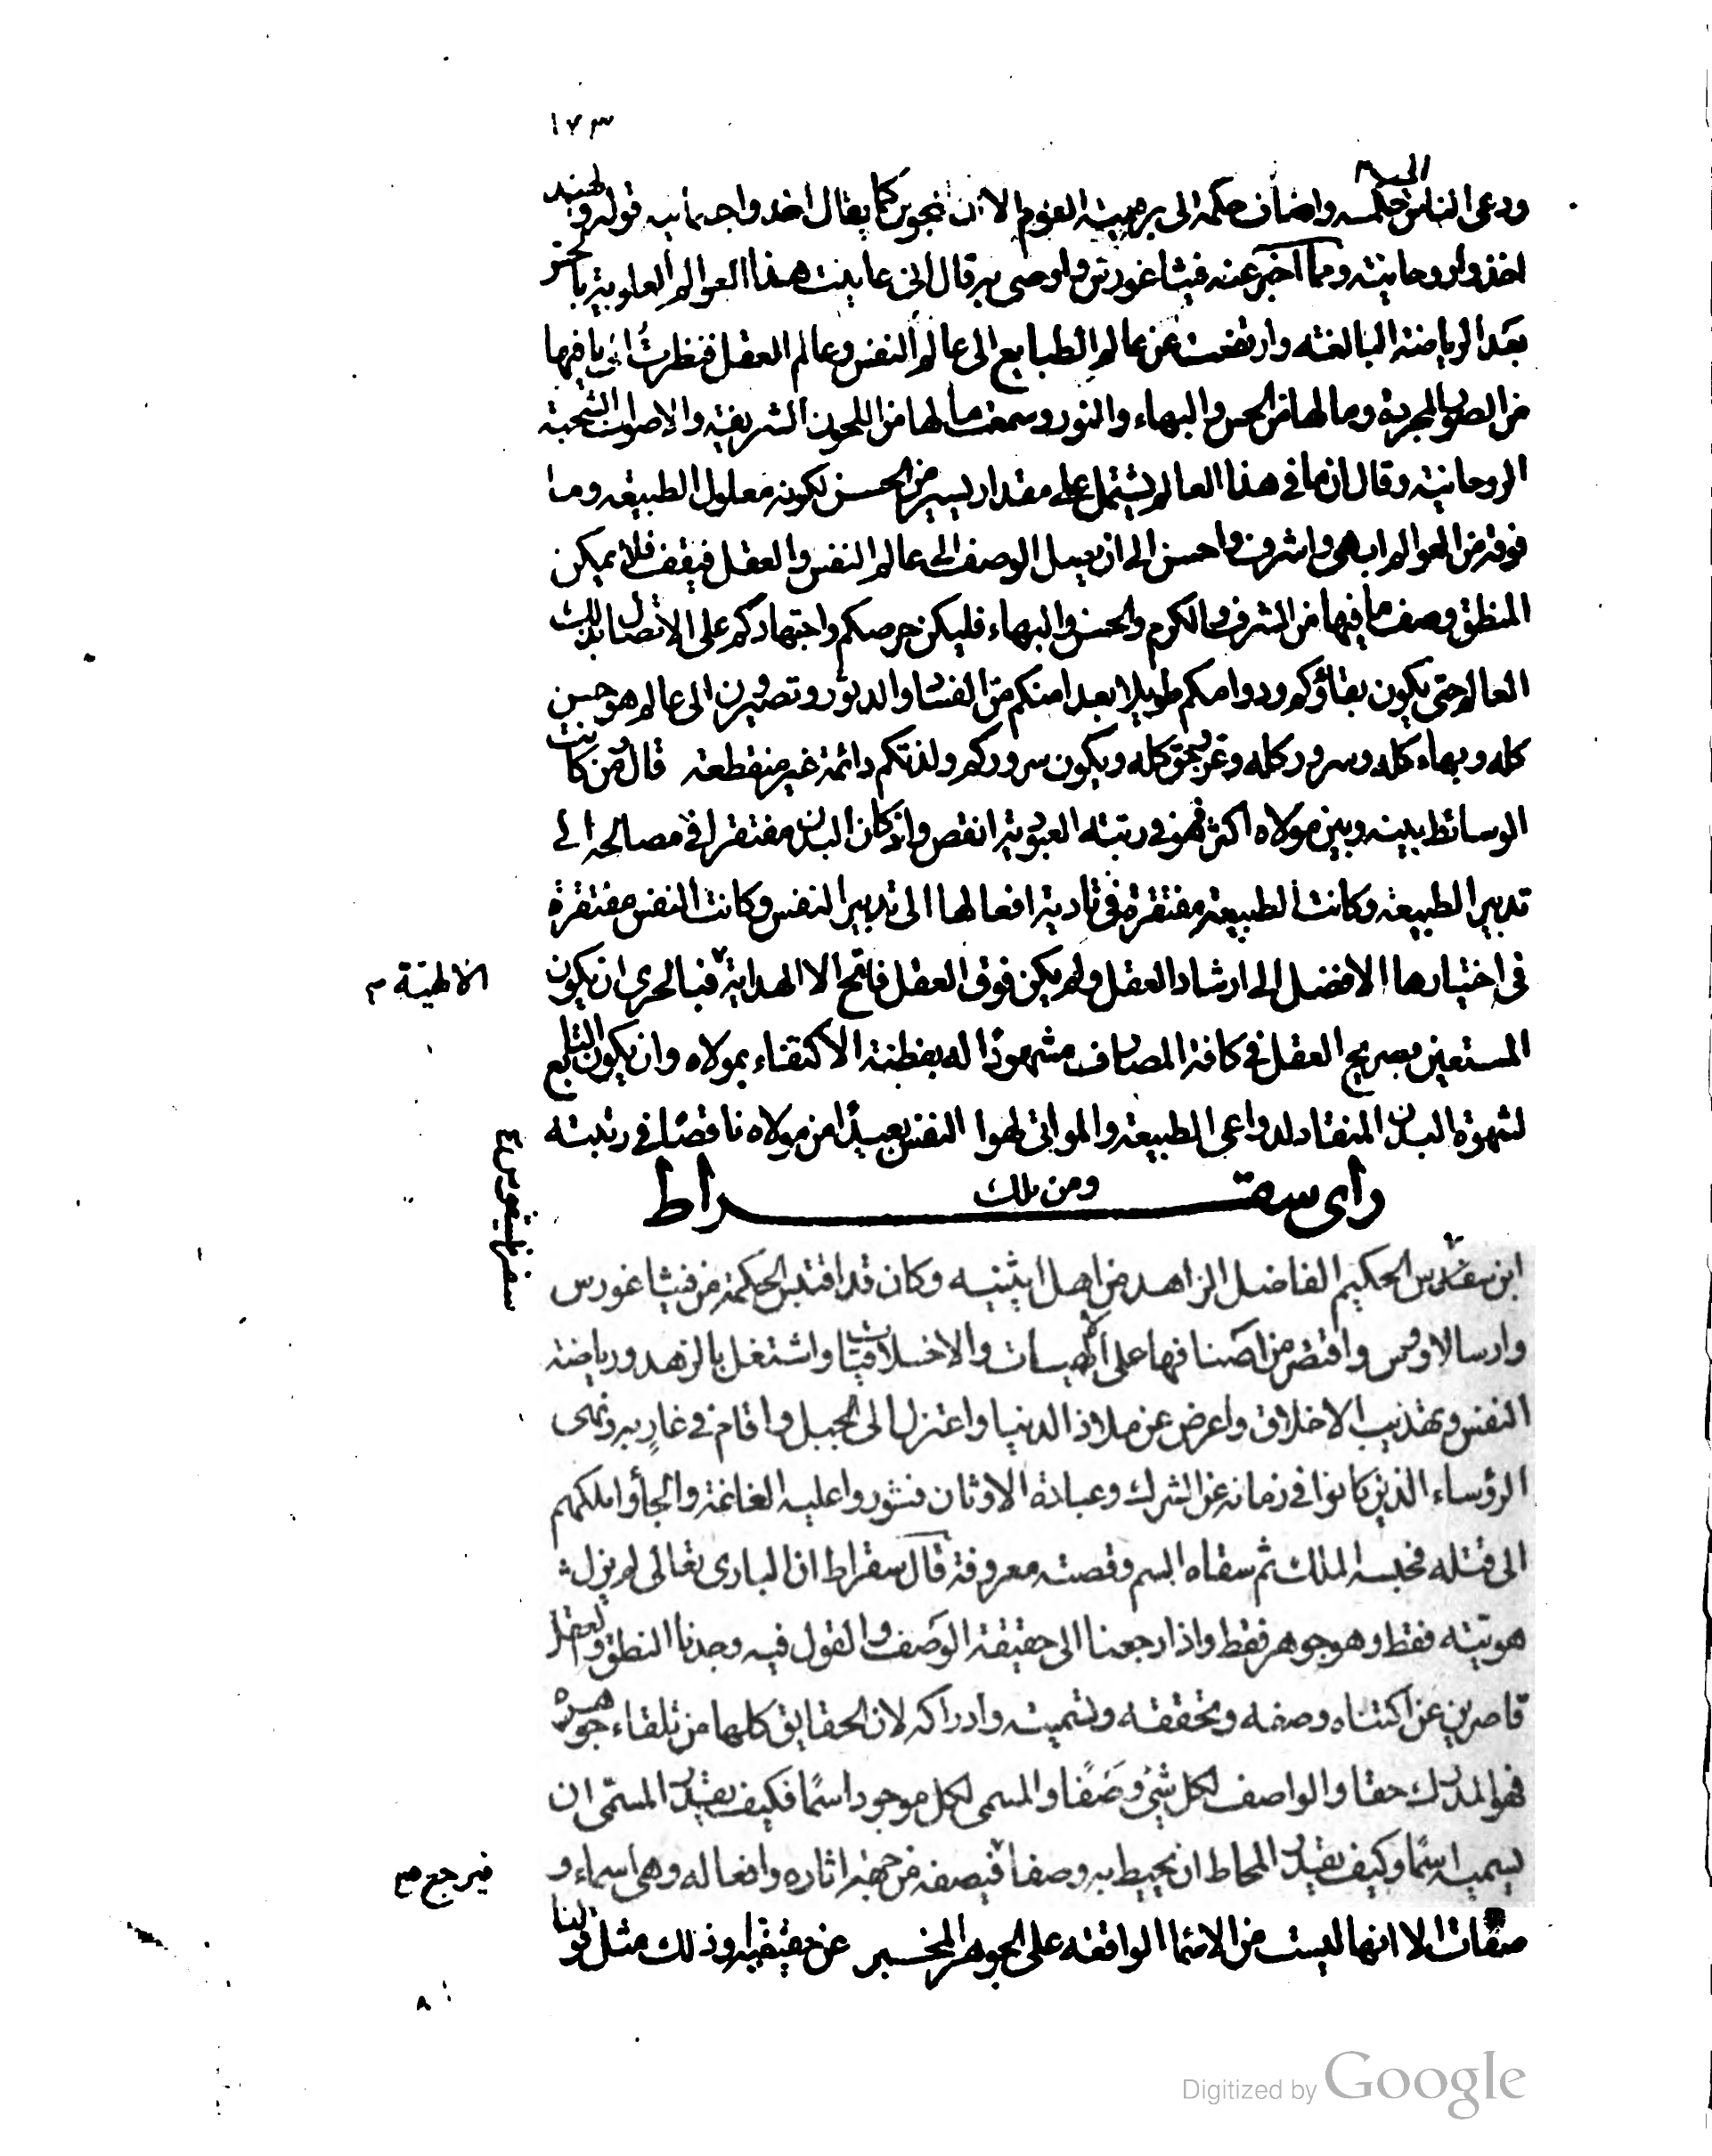 ١٧٣
الى
ودعى الناس حكمه واضاف حكمه الى برهمية القوم الا ان نجوير كما يقال اخذوا جسمانيه قوله والهند
اخذوا روحانيته ومما اخبر عنه فيثاغورس واوصى به قال انى عاينت هذا العوالم العلوية بالحس
بعد الرياضة البالغته وارتفعت عن عالم الطبايع الى عالم النفس وعالم العقل فنظرت الى ما فيها
من الصور المجردة وما لها من الحسن والبهاء والنور وسمعت ما لها من اللحون الشريفة والاصوات الشجية
الروحانية وقال ان ما فى هذا العالم يشتمل على مقدار يسير من الحسن لكونه معلول الطبيعه وما
فوقه من العوالم ابهى واشرف واحسن الى ان يصل الوصف الى عالم النفس والعقل فيقف فلا يمكن
المنطق وصف ما فيها من الشرف والكرم والحسن والبهاء فليكن حرصكم واجتهادكم على الاتصال بذلك
العالم حتى يكون بقاؤكم ودوامكم طويلا بعد امنكم من الفساد والدثور وتصيرون الى عالم هو حسن
كله وبهاء كله وسرور كله وعز وحق كله ويكون سروركم ولذتكم دائمة غير منقطعة قال ومن كانت
الوسائط بينه وبين مولاه اكثر فهو فى رتبته العبودية انقص واذ كان البدن مفتقرا فى مصالحه الى
تدبير الطبيعة وكانت الطبيعة مفتقرة فى تادية افعالها الى تدبير النفس وكانت النفس مفتقرة
فى اختيارها الافضل الى ارشاد العقل ولم يكن فوق العقل فاتح الا الهداية فبالحرى ان يكون
الالهية م
المستعين بصريح العقل فى كافة المصارف مشهودا له بفطنة الاكتفاء بمولاه وان يكون التابع
لشهوة البدن المنقاد لدواعى الطبيعة والموانى لهوا النفس بعيدا من مولاه ناقصا فى رتبته
ومن ذلك
راى سقراط
ابن سفر الحكيم الفاضل الزاهد من اهل اثينيه وكان قد اقتبس الحكمة من فيثاغورس
وارسالاوس واقتصر من اصنافها على الالهيات والاخلاقيات واشتغل بالزهد ورياضة
النفس وتهذيب الاخلاق واعرض عن ملاذ الدنيا واعتزل الى الجبل واقام فى غار به ونهى
الرؤساء الذين كانوا فى زمانه عن الشرك وعبادة الاوثان فثوروا عليه الغاغة والجأوا ملكهم
الى قتله فحبسه الملك ثم سقاه السم وقصته معروفة قال سقراط ان البارى تعالى لم يزل
هويته فقط وهو جوهر فقط واذا رجعنا الى حقيقة الوصف والقول فيه وجدنا النطق والعقل
قاصرين عن اكتناه وصفه وتحققه وتسميته وادراكه لان الحقايق كلها من تلقاء جوهره
فهو المدرك حقا والواصف لكل شئ وصفا والمسمى لكل موجود اسما فكيف يقدر المسمى ان
يسميه اسما وكيف يقدر المحاط ان يحيط به وصفا فيصفه من جهة اثاره وافعاله وهى اسماء و
فيرجع
صفات الا انها ليست من الاسما الواقعه على الجوهر المخبر عن حقيقته وذلك مثل قولنا
Digitized by Google